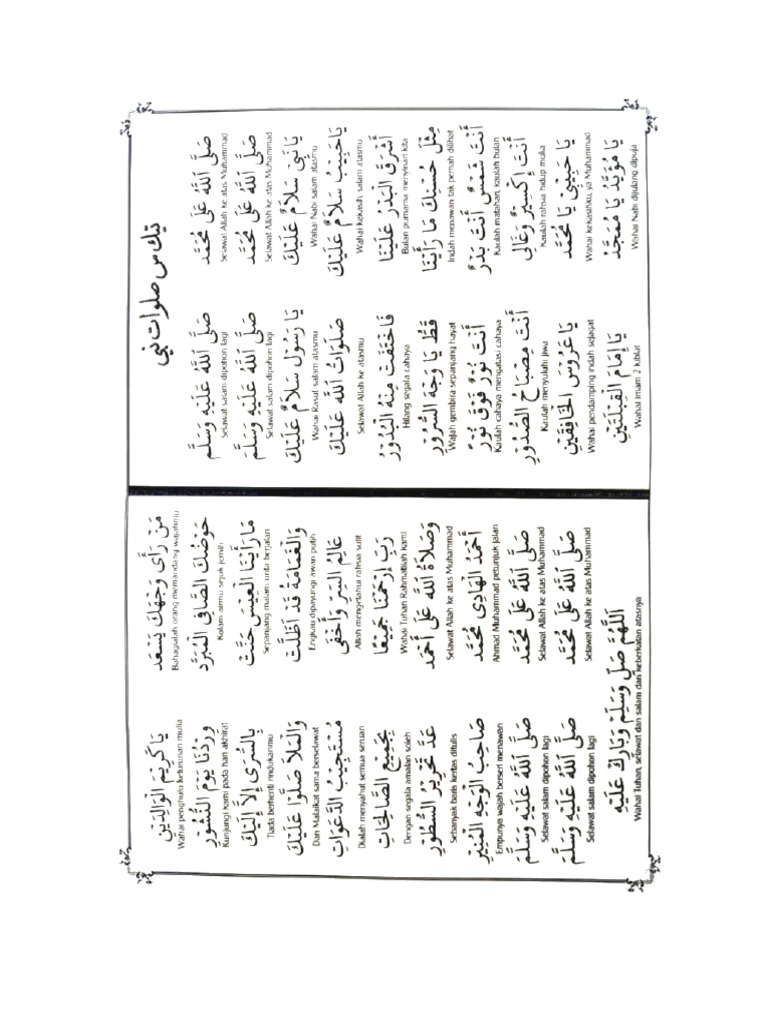 تيکس صلوات نبي
صَلَّى ٱللَّهُ عَلَى مُحَمَّد صَلَّى ٱللَّهُ عَلَيْهِ وَسَلَّم
Selawat Allah ke atas Muhammad Selawat salam dipohon lagi
صَلَّى ٱللَّهُ عَلَى مُحَمَّد صَلَّى ٱللَّهُ عَلَيْهِ وَسَلَّم
Selawat Allah ke atas Muhammad Selawat salam dipohon lagi
يَا نَبِي سَلَامٌ عَلَيْكَ يَا رَسُوْل سَلَامٌ عَلَيْكَ
Wahai Nabi salam atasmu Wahai Rasul salam atasmu
يَا حَبِيْبُ سَلَامٌ عَلَيْكَ صَلَوَاتُ اللَّه عَلَيْكَ
Wahai kekasih, salam atasmu Selawat Allah ke atasmu
أَشْرَقَ الْبَدْرُ عَلَيْنَا فَاخْتَفَتْ مِنْهُ الْبُدُوْرُ
Bulan purnama menyinari kita Hilang segala cahaya
مِثْلَ حُسْنِكَ مَا رَأَيْنَا قَطُّ يَا وَجْهَ السُّرُوْرِ
Indah menawan tak pernah dilihat Wajah gembira sepanjang hayat
أَنْتَ شَمْسٌ أَنْتَ بَدْرٌ أَنْتَ نُوْرٌ فَوْقَ نُوْرٍ
Kaulah matahari, kaulah bulan Kaulah cahaya mengatasi cahaya
أَنْتَ إِكْسِيْرٌ وَغَالِي أَنْتَ مِصْبَاحُ الصُّدُوْرِ
Kaulah rahsia hidup mulia Kaulah menyuluhi jiwa
يَا حَبِيْبِيْ يَا مُحَمَّد يَا عَرُوْسَ الْخَافِقَيْنِ
Wahai kekasihku, ya Muhammad Wahai pendamping indah sejagat
يَا مُؤَيَّدُ يَا مُمَجَّدُ يَا إِمَامَ الْقِبْلَتَيْنِ
Wahai Nabi dijulang dipuja Wahai Imam 2 kiblat
مَنْ رَأَى وَجْهَكَ يَسْعَد يَا كَرِيْمَ الْوَالِدَيْنِ
Bahagialah orang memandang wajahmu Wahai penghulu keturunan mulia
حَوْضُكَ الصَّافِي الْمُبَرَّد وِرْدُنَا يَوْمَ النُّشُوْرِ
Kolam airmu sejuk jernih Kunjungi kami pada hari akhirat
مَا رَأَيْنَا الْعِيْسَ حَنَّتْ بِالسُّرَى إِلَّا إِلَيْكَ
Sepanjang malam unta berjalan Tiada berhenti rindukanmu
وَالْغَمَامَةُ قَدْ أَظَلَّتْ وَالْمَلَا صَلُّوْا عَلَيْكَ
Engkau dipayungi awan putih Dan Malaikat sama berselawat
عَالِمُ السِّرِّ وَأَخْفَى مُسْتَجِيْبُ الدَّعَوَاتِ
Allah mengetahui rahsia sulit Dialah menyahut semua seruan
رَبِّ إِرْحَمْنَا جَمِيْعًا بِجَمِيْعِ الصَّالِحَاتِ
Wahai Tuhan Rahmatilah kami Dengan segala amalan soleh
وَصَلَاةُ اللَّه عَلَى أَحْمَد عَدَّ تَحْرِيْرِ السُّطُوْرِ
Selawat Allah ke atas Muhammad Sebanyak baris kertas ditulis
أَحْمَدُ الْهَادِي مُحَمَّد صَاحِبُ الْوَجْهِ الْمُنِيْرِ
Ahmad Muhammad petunjuk jalan Empunya wajah berseri menawan
صَلَّى ٱللَّهُ عَلَى مُحَمَّد صَلَّى ٱللَّهُ عَلَيْهِ وَسَلَّم
Selawat Allah ke atas Muhammad Selawat salam dipohon lagi
صَلَّى ٱللَّهُ عَلَى مُحَمَّد صَلَّى ٱللَّهُ عَلَيْهِ وَسَلَّم
Selawat Allah ke atas Muhammad Selawat salam dipohon lagi
اَللَّهُمَّ صَلِّ وَسَلِّمْ وَبَارِكْ عَلَيْهِ
Wahai Tuhan, selawat dan salam dan keberkatan atasnya